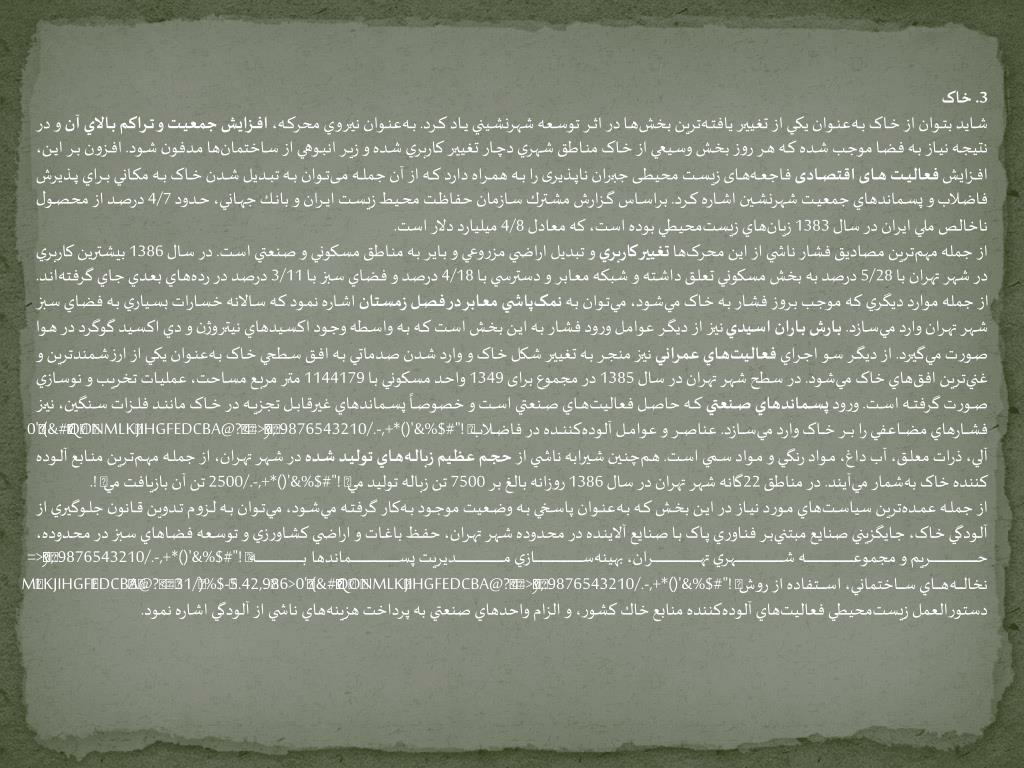 3. خاک
شايد بتوان از خاک به‌عنوان يكي از تغيير يافته‌ترين بخش‌ها در اثر توسعه شهرنشيني ياد کرد. به‌عنوان نيروي محرکه، افزايش جمعيت و تراکم بالاي آن و در
نتيجه نياز به فضا موجب شده که هر روز بخش وسيعي از خاک مناطق شهري دچار تغيير کاربري شده و زير انبوهي از ساختمان‌ها مدفون شود. افزون بر اين،
افزايش فعاليت های اقتصادی فاجعه‌های زيست محيطی جبران ناپذيری را به همراه دارد که از آن جمله می‌توان به تبديل شدن خاک به مكاني براي پذيرش
فاضلاب و پسماندهاي جمعيت شهرنشين اشاره کرد. براساس گزارش مشترك سازمان حفاظت محيط زيست ايران و بانك جهاني، حدود 4/7 درصد از محصول
ناخالص ملي ايران در سال 1383 زيان‌هاي زيست‌محيطي بوده است، که معادل 4/8 ميليارد دلار است.
از جمله مهم‌ترين مصاديق فشار ناشي از اين محرک‌ها تغيير کاربري و تبديل اراضي مزروعي و باير به مناطق مسکوني و صنعتي است. در سال 1386 بيشترين کاربري
در شهر تهران با 5/28 درصد به بخش مسکوني تعلق داشته و شبکه معابر و دسترسي با 4/18 درصد و فضاي سبز با 3/11 درصد در رده‌هاي بعدي جاي گرفته‌اند.
از جمله موارد ديگري که موجب بروز فشار به خاک مي‌شود، مي‌توان به نمک‌پاشي معابر در فصل زمستان اشاره نمود که سالانه خسارات بسياري به فضاي سبز
شهر تهران وارد مي‌سازد. بارش باران اسيدي نيز از ديگر عوامل ورود فشار به اين بخش است که به واسطه وجود اکسيدهاي نيتروژن و دي اکسيد گوگرد در هوا
صورت مي‌گيرد. از ديگر سو اجراي فعاليت‌هاي عمراني نيز منجر به تغيير شکل خاک و وارد شدن صدماتي به افق سطحي خاک به‌عنوان يکي از ارزشمندترين و
غني‌ترين افق‌هاي خاک مي‌شود. در سطح شهر تهران در سال 1385 در مجموع برای 1349 واحد مسکوني با 1144179 متر مربع مساحت، عمليات تخريب و نوسازي
صورت گرفته است. ورود پسماندهاي صنعتي که حاصل فعاليت‌هاي صنعتي است و خصوصاً پسماندهاي غيرقابل تجزيه در خاک مانند فلزات سنگين، نيز
فشارهاي مضاعفي را بر خاک وارد مي‌سازد. عناصر و عوامل آلوده‌کننده در فاضلاب
آلي، ذرات معلق، آب داغ، مواد رنگي و مواد سمي است. هم‌چنين شيرابه ناشي از حجم عظيم زباله‌هاي توليد شده در شهر تهران، از جمله مهم‌ترين منابع آلوده
کننده خاک به‌شمار مي‌آيند. در مناطق 22گانه شهر تهران در سال 1386 روزانه بالغ بر 7500 تن زباله توليد مي !"#$%&'()*+,-./2500 تن آن بازيافت مي !.
از جمله عمده‌ترين سياست‌هاي مورد نياز در اين بخش که به‌عنوان پاسخي به وضعيت موجود به‌کار گرفته مي‌شود، مي‌توان به لزوم تدوين قانون جلوگيري از
آلودگي خاک، جايگزيني صنايع مبتني‌بر فناوري پاک با صنايع آلاينده در محدوده شهر تهران، حفظ باغات و اراضي کشاورزي و توسعه فضاهاي سبز در محدوده،
حريم و مجموعه شهري تهران، بهينه‌سازي مديريت پسماندها ب
نخاله‌هاي ساختماني، استفاده از روش
دستورالعمل زيست‌محيطي فعاليت‌هاي آلوده‌کننده منابع خاك کشور، و الزام واحدهاي صنعتي به پرداخت هزينه‌هاي ناشي از آلودگي اشاره نمود.